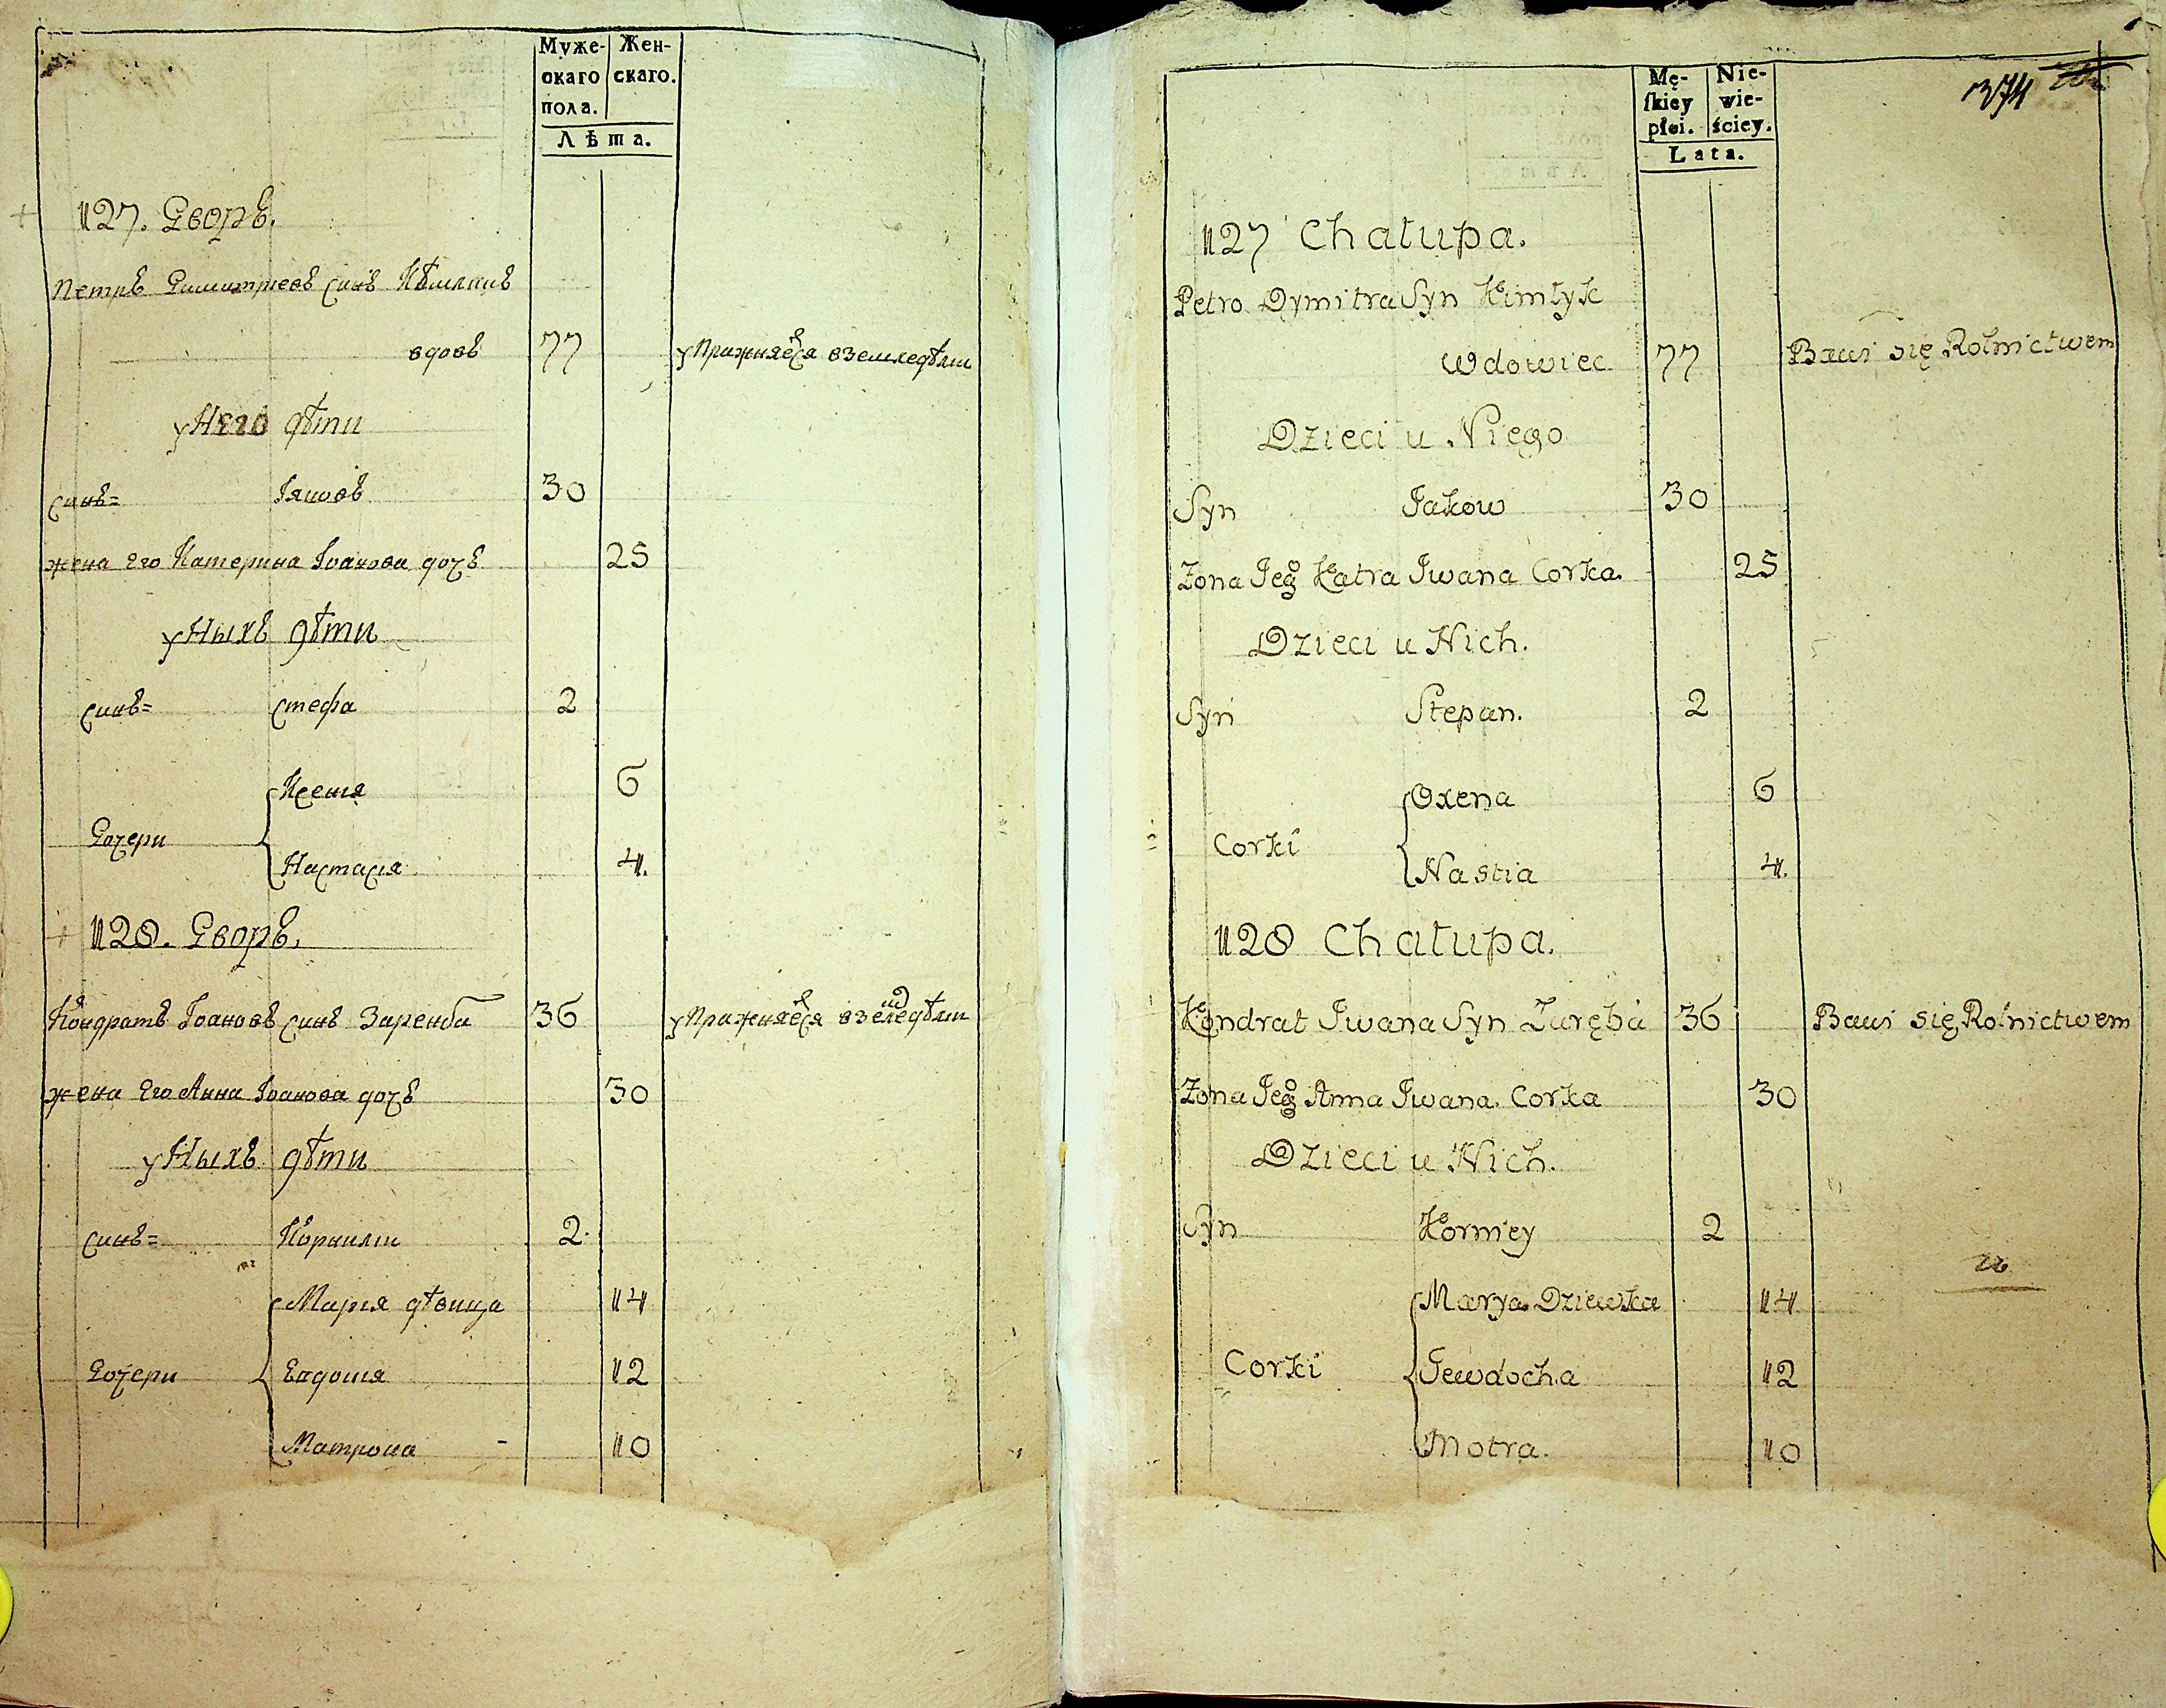 Муже-
скаго
пола.
Жен-
скаго.
Лѣта.
127. Дворъ.
Петръ Димитриевъ синъ
вдовъ 77 упражняе́ся вземледѣлии
у Него дѣти
синъ= Іяковъ 30
жена Его Катерина Іванова дочъ 25
у Ныхъ дѣти
синъ= Стефа 2
Дочери
Ксения 6
Настасія 4.
128. Дворъ.
Кондратъ Іоановъ синъ Заремба 36 упражняе́ся вземледѣлии
жена Его Анна Іоанова дочъ 30
у Ныхъ дѣти
синъ= Корнили 2.
Дочери
Марія дѣвица 14
Евдокия 12
Матрона - 10
Mę-
ſkiey
płci.
Nie-
wie-
ściey.
Lata.
374
127 Chałupa.
Petro Dymitra Syn Kimłyk
Wdowiec 77 Bawi się Rolnictwem
Dzieci u Niego
Syn Jakow 30
Zona Jego Katra Iwana Corka. 25
Dzieci u Nich.
Syn Stepan. 2
Corki
Oxena 6
Nastia 4.
128 Chałupa.
Kondrat Iwana Syn Zaręba 36 Bawi się Rolnictwem
Zona Jego Anna Iwana Corka 30
Dzieci u Nich.
Syn Korniey 2
Corki
Marya Dziewka 14
Jewdocha 12
Motra. 10